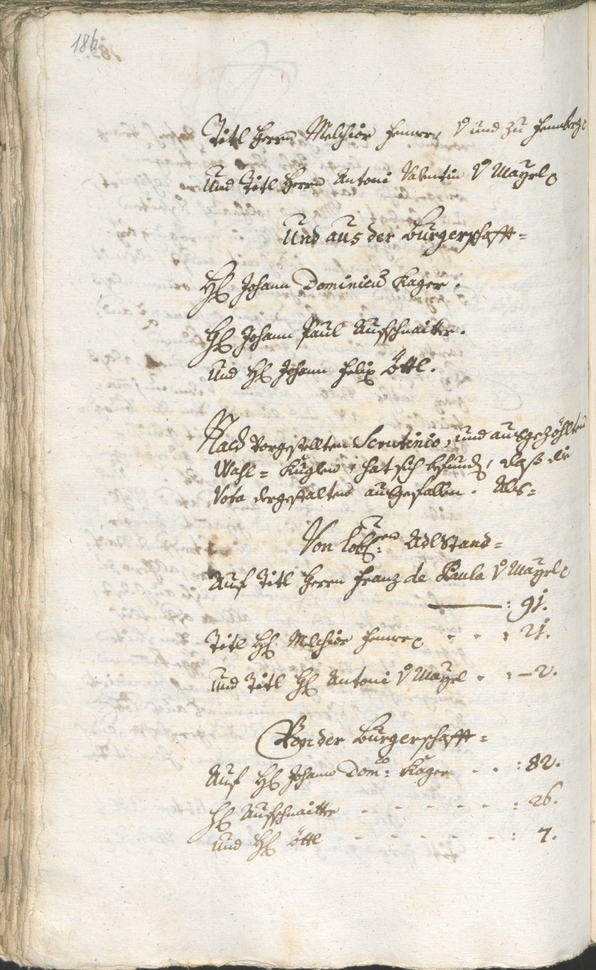 186.
Titl Herrn Melchior Hemrer V und zu Hemberg
und Titl Herrn Antoni Valentin V Mayrl
Und aus der Burgerschafft=
H: Johann Dominicus Kager.
H: Johann Paul Aufschnaitter.
und H: Johann Felix Öttl.
Nach vorgestellten Scrutinio, und ausgezöhlten
Wahl= Kuglen, hat sich befunden, daß die
Vota dergestalten ausgefallen. Als=
Von Lobl: Adlstand=
Auf Titl Herrn Franz de Paula V Mayrl
: 91.
Titl H: Melchior : 21.
und Titl H: Antoni V Mayrl : 2.
Von der Burgerschafft=
Auf H: Johann Dom: Kager - - : 82.
H: Aufschnaitter - - - - - : 26.
und H: Öttl - - - - - : 7.